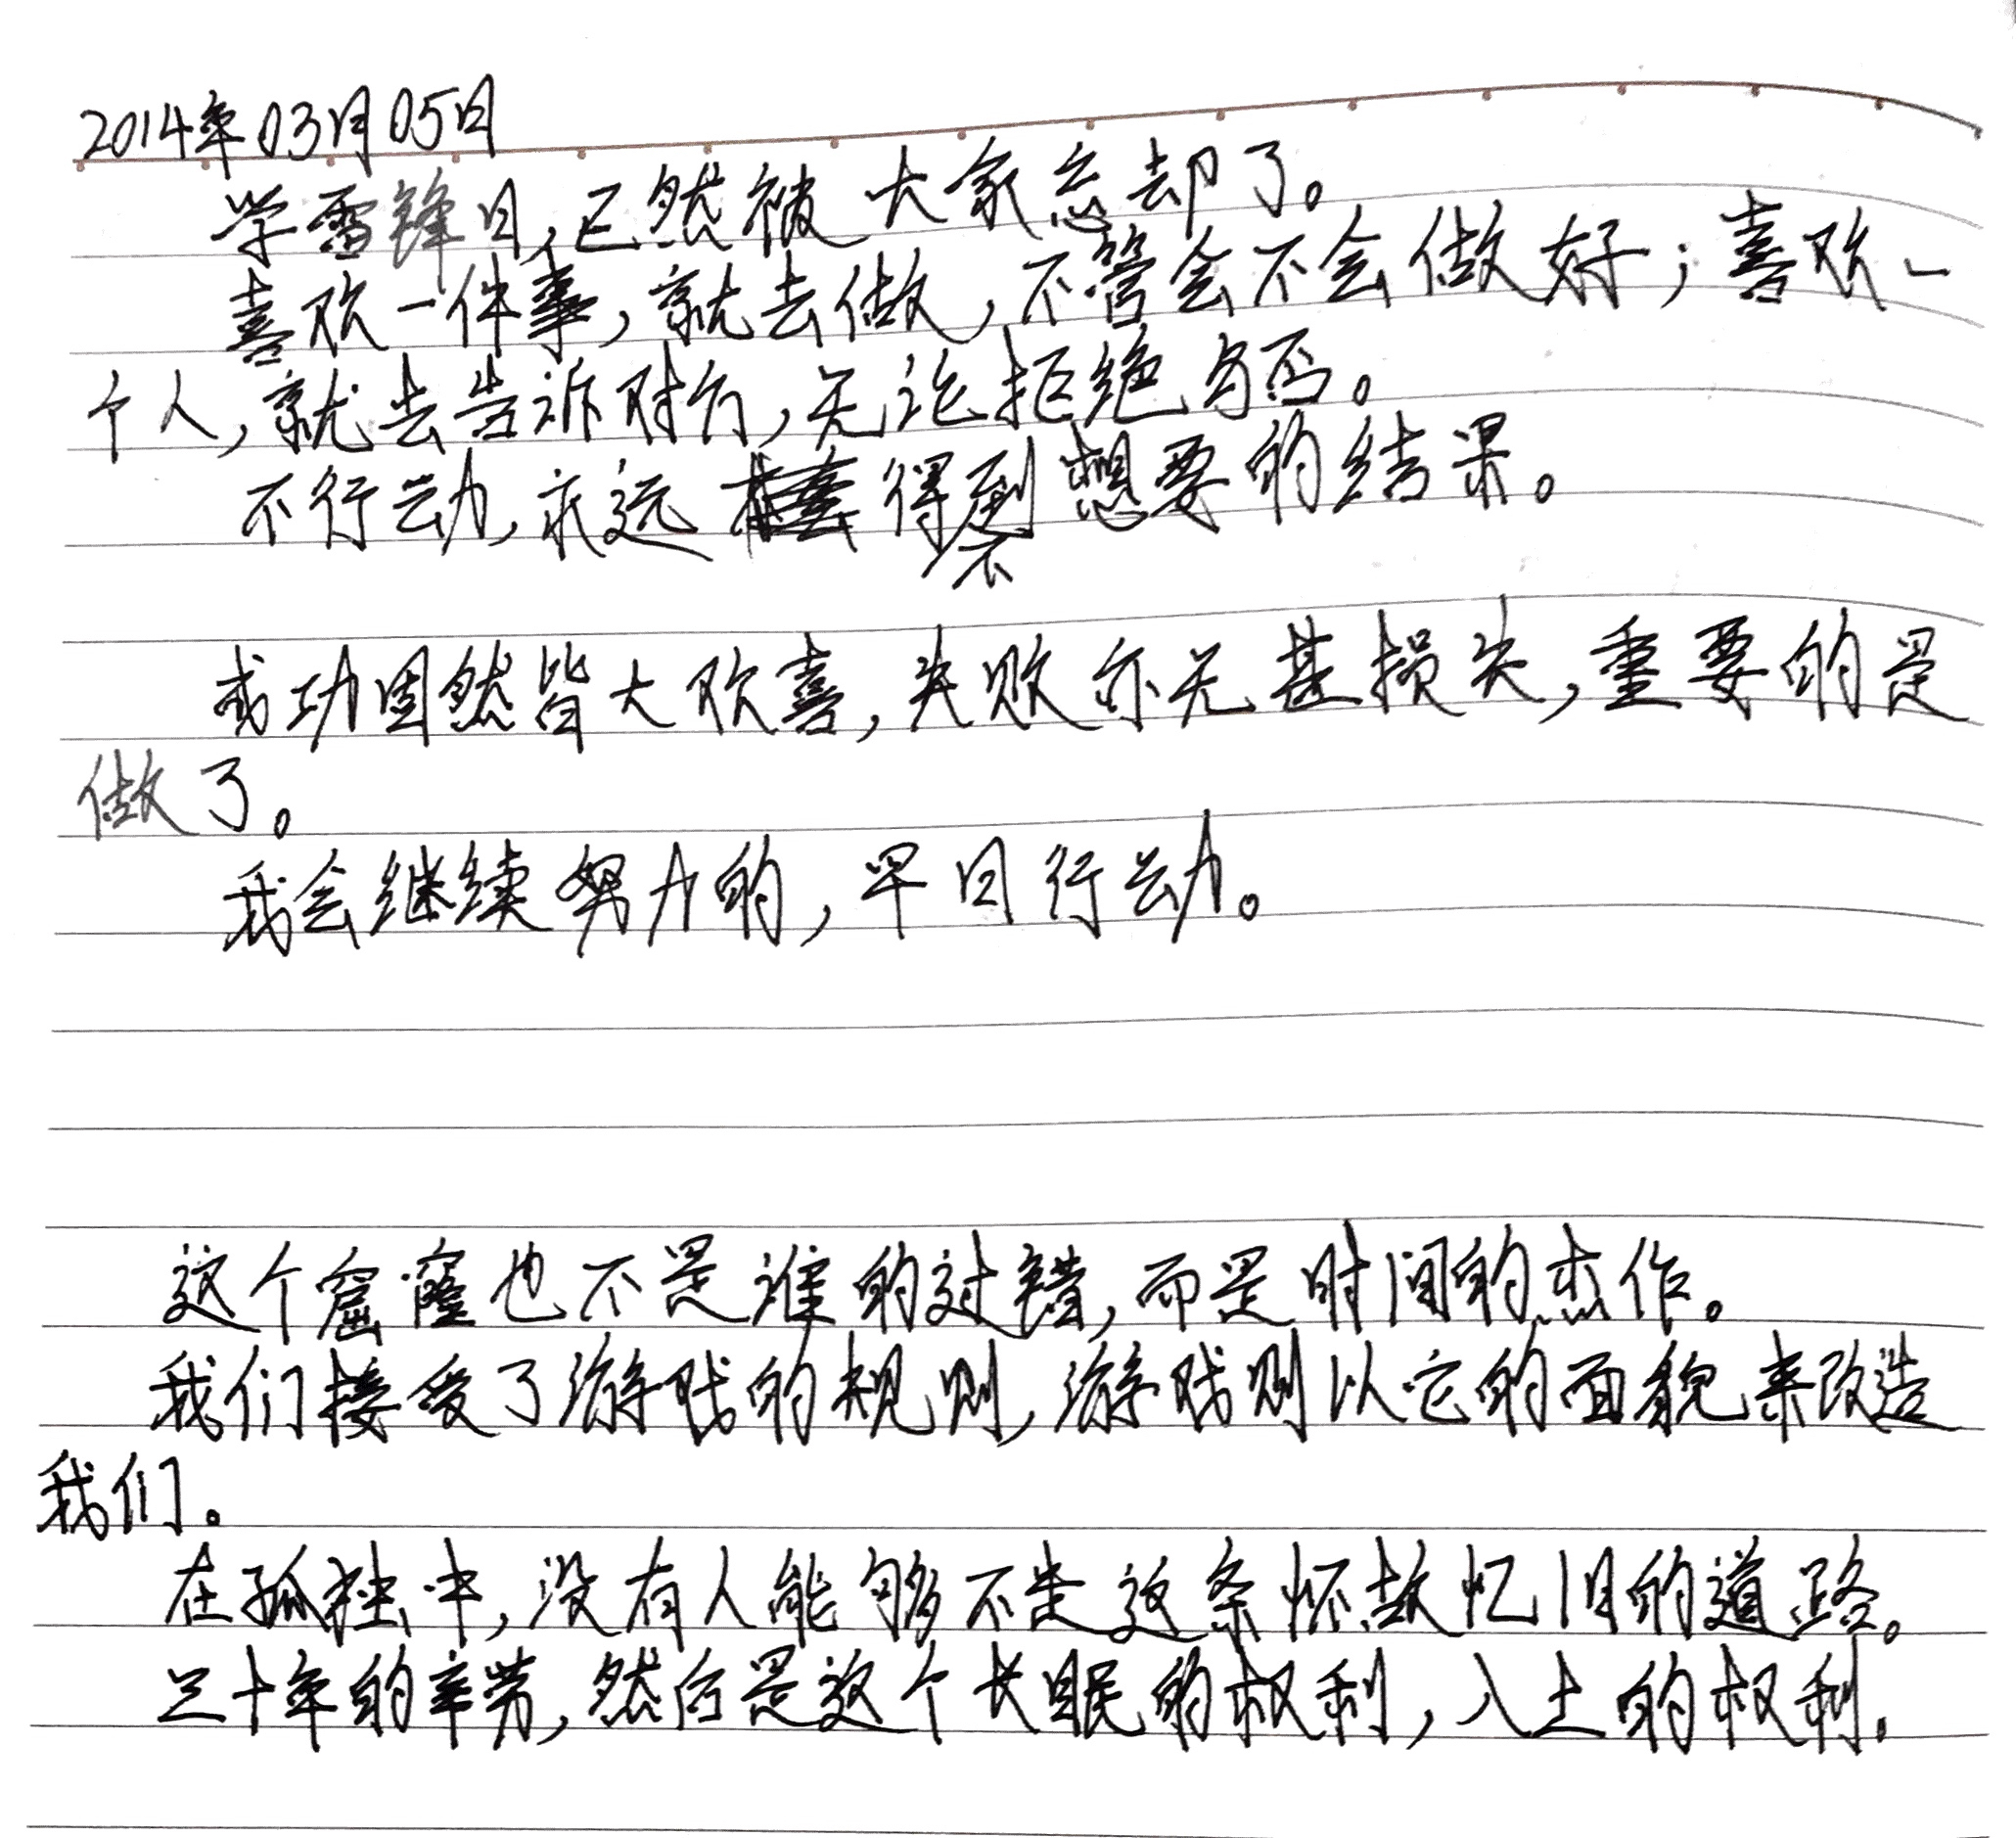 2014年03月05日
学雷锋日,已然被大家忘却了。
喜欢一件事,就去做,不管会不会做好;喜欢一
个人,就去告诉对方,无论拒绝与否。
不行动,永远得不到想要的结果。
成功固然皆大欢喜,失败亦无甚损失,重要的是
做了。
我会继续努力的,早日行动。
这个窟窿也不是谁的过错,而是时间的杰作。
我们接受了游戏的规则,游戏则以它的面貌来改造
我们。
在孤独中,没有人能够不走这条怀故忆旧的道路。
三十年的辛劳,然后是这个长眠的权利,入土的权利.